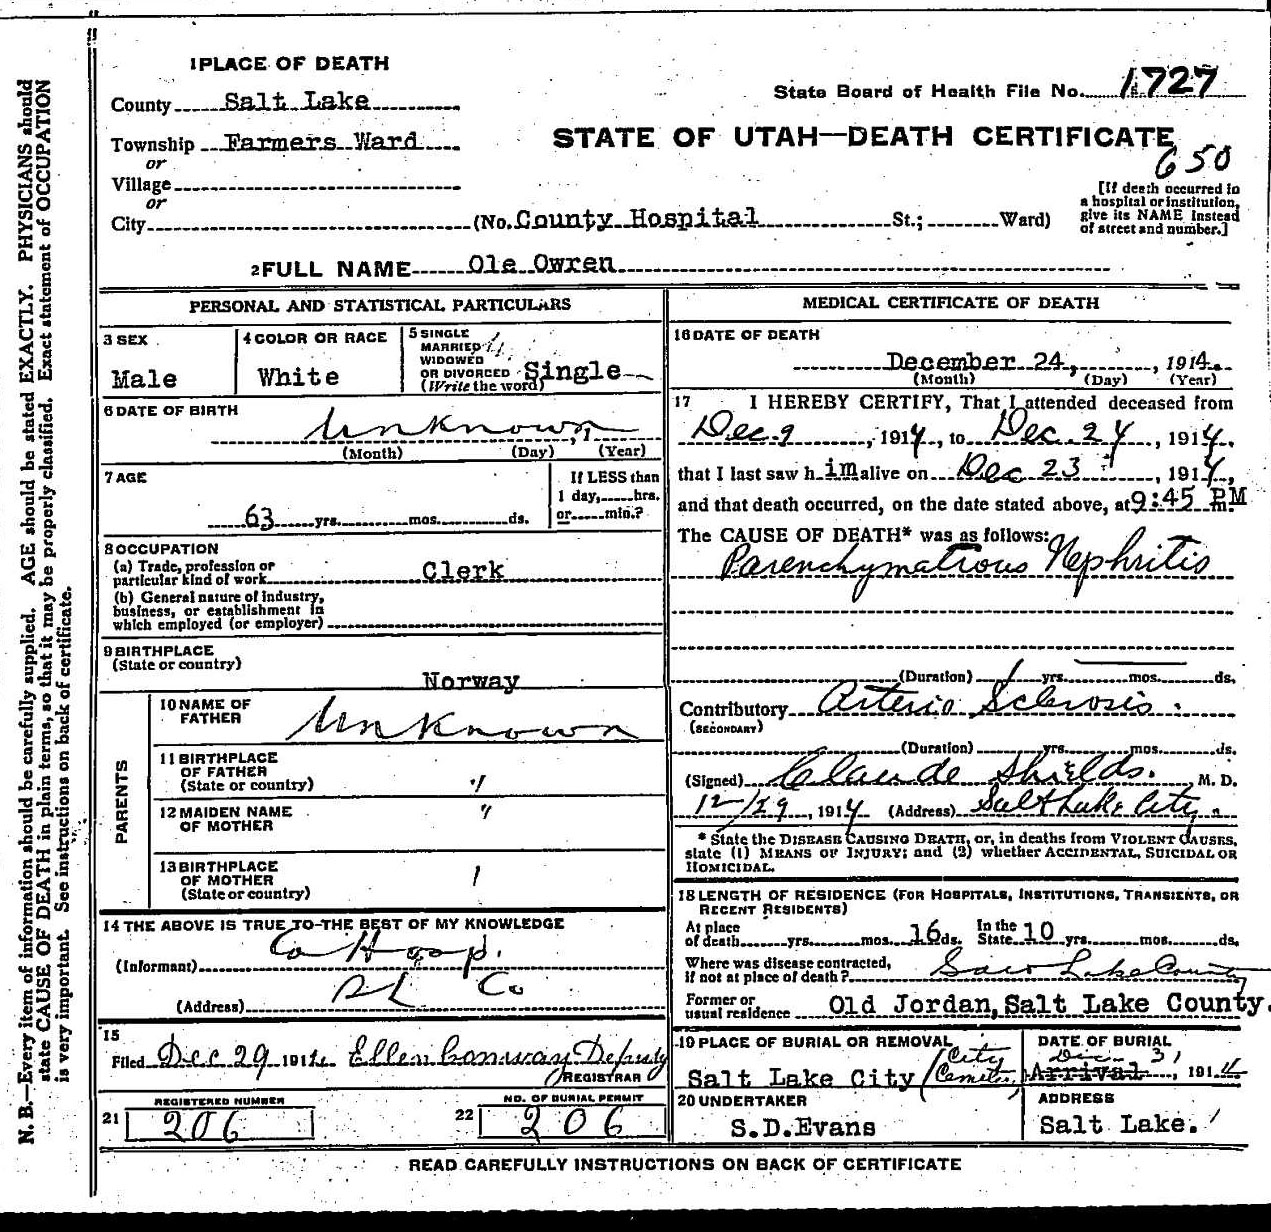 1 PLACE OF DEATH
County Salt Lake
State Board of Health File No. 1727
Township Farmers Ward
STATE OF UTAH—DEATH CERTIFICATE
650
or
Village
or
City (No. County Hospital St.; Ward)
[If death occurred in
a hospital or institution,
give its NAME instead
of street and number.]
2 FULL NAME Ole Owren
PERSONAL AND STATISTICAL PARTICULARS
3 SEX
Male
4 COLOR OR RACE
White
5 SINGLE
MARRIED
WIDOWED
OR DIVORCED
(Write the word)
Single
6 DATE OF BIRTH
Unknown, 1
(Month) (Day) (Year)
7 AGE
63 yrs. mos. ds.
If LESS than
1 day, hrs.
or min.?
8 OCCUPATION
(a) Trade, profession or
particular kind of work Clerk
(b) General nature of industry,
business, or establishment in
which employed (or employer)
9 BIRTHPLACE
(State or country)
Norway
PARENTS
10 NAME OF
FATHER
Unknown
11 BIRTHPLACE
OF FATHER
(State or country) "
12 MAIDEN NAME
OF MOTHER "
13 BIRTHPLACE
OF MOTHER
(State or country)
14 THE ABOVE IS TRUE TO THE BEST OF MY KNOWLEDGE
(Informant) Co Hosp.
(Address) S L Co
15
Filed Dec 29 1914 Ellen Conway Deputy
REGISTRAR
21 REGISTERED NUMBER
206
22 NO. OF BURIAL PERMIT
206
MEDICAL CERTIFICATE OF DEATH
16 DATE OF DEATH
December 24, , 1914.
(Month) (Day) (Year)
17 I HEREBY CERTIFY, That I attended deceased from
Dec 9, 1914, to Dec. 24, 1914,
that I last saw h im alive on Dec 23, 1914,
and that death occurred, on the date stated above, at 9:45 PM
The CAUSE OF DEATH* was as follows:
Parenchymatious Nephritis
(Duration) 1 yrs. mos. ds.
Contributory Arterio Sclerosis.
(SECONDARY)
(Duration) yrs. mos. ds.
(Signed) Claude Shields. M. D.
12/29, 1914 (Address) Salt Lake City.
* State the DISEASE CAUSING DEATH, or, in deaths from VIOLENT CAUSES,
state (1) MEANS OF INJURY; and (2) whether ACCIDENTAL, SUICIDAL OR
HOMICIDAL.
18 LENGTH OF RESIDENCE (FOR HOSPITALS, INSTITUTIONS, TRANSIENTS, OR
RECENT RESIDENTS)
At place
of death yrs. mos. 16 ds. In the
State 10 yrs. mos. ds.
Where was disease contracted,
if not at place of death? Salt Lake County
Former or
usual residence Old Jordan, Salt Lake County.
19 PLACE OF BURIAL OR REMOVAL
Salt Lake City (City
DATE OF BURIAL
Dec. 31
Arrival, 1914
20 UNDERTAKER
S.D.Evans
ADDRESS
Salt Lake.
READ CAREFULLY INSTRUCTIONS ON BACK OF CERTIFICATE
N. B.—Every item of information should be carefully supplied. AGE should be stated EXACTLY. PHYSICIANS should
state CAUSE OF DEATH in plain terms, so that it may be properly classified. Exact statement of OCCUPATION
is very important. See instructions on back of certificate.